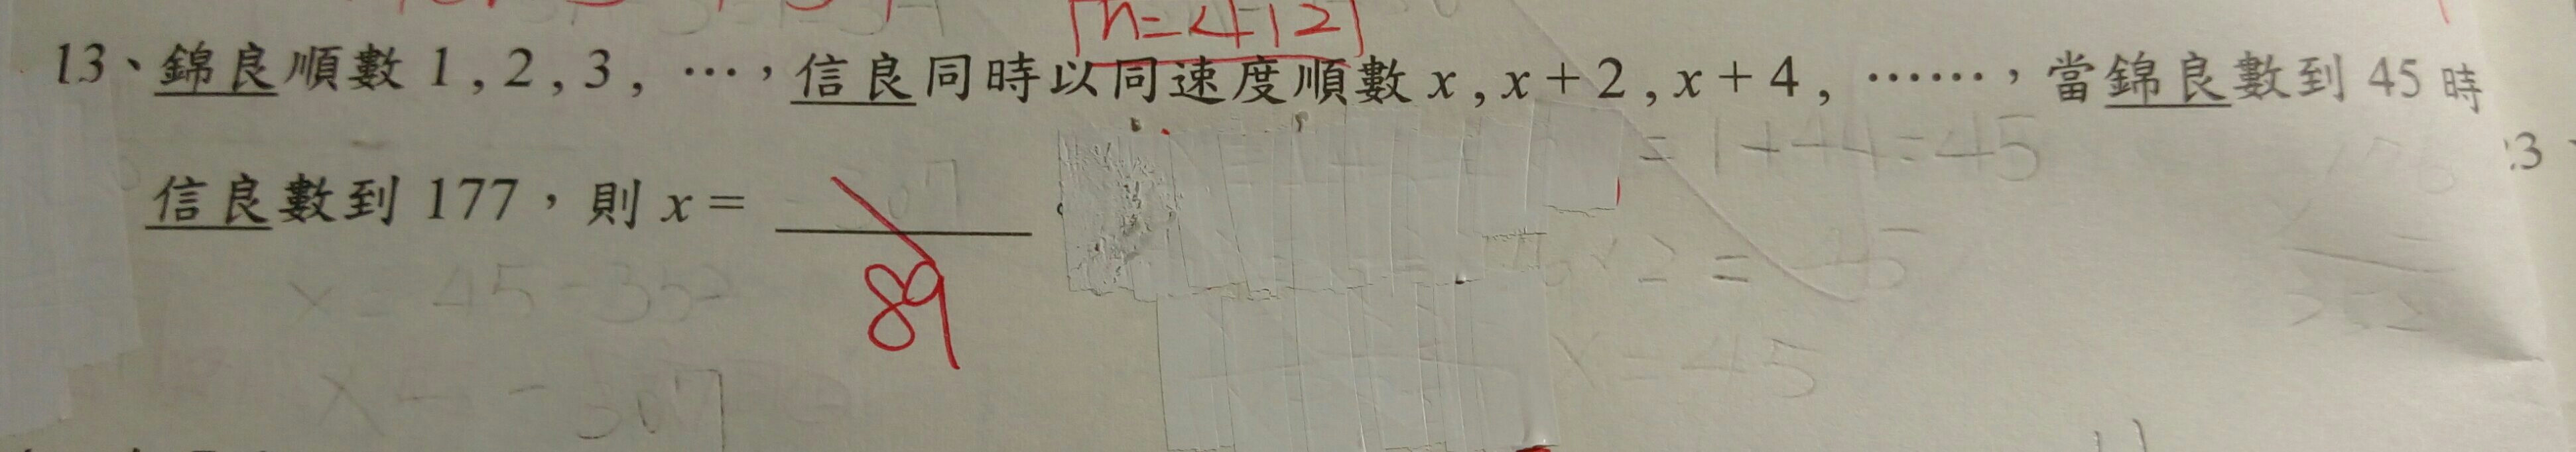 n=412
13、錦良順數 1 , 2 , 3 , …,信良同時以同速度順數 x , x + 2 , x + 4 , ……,當錦良數到 45 時
= 1+44=45
信良數到 177,則 x =
89
x = 45-352
x = 45
x = -307